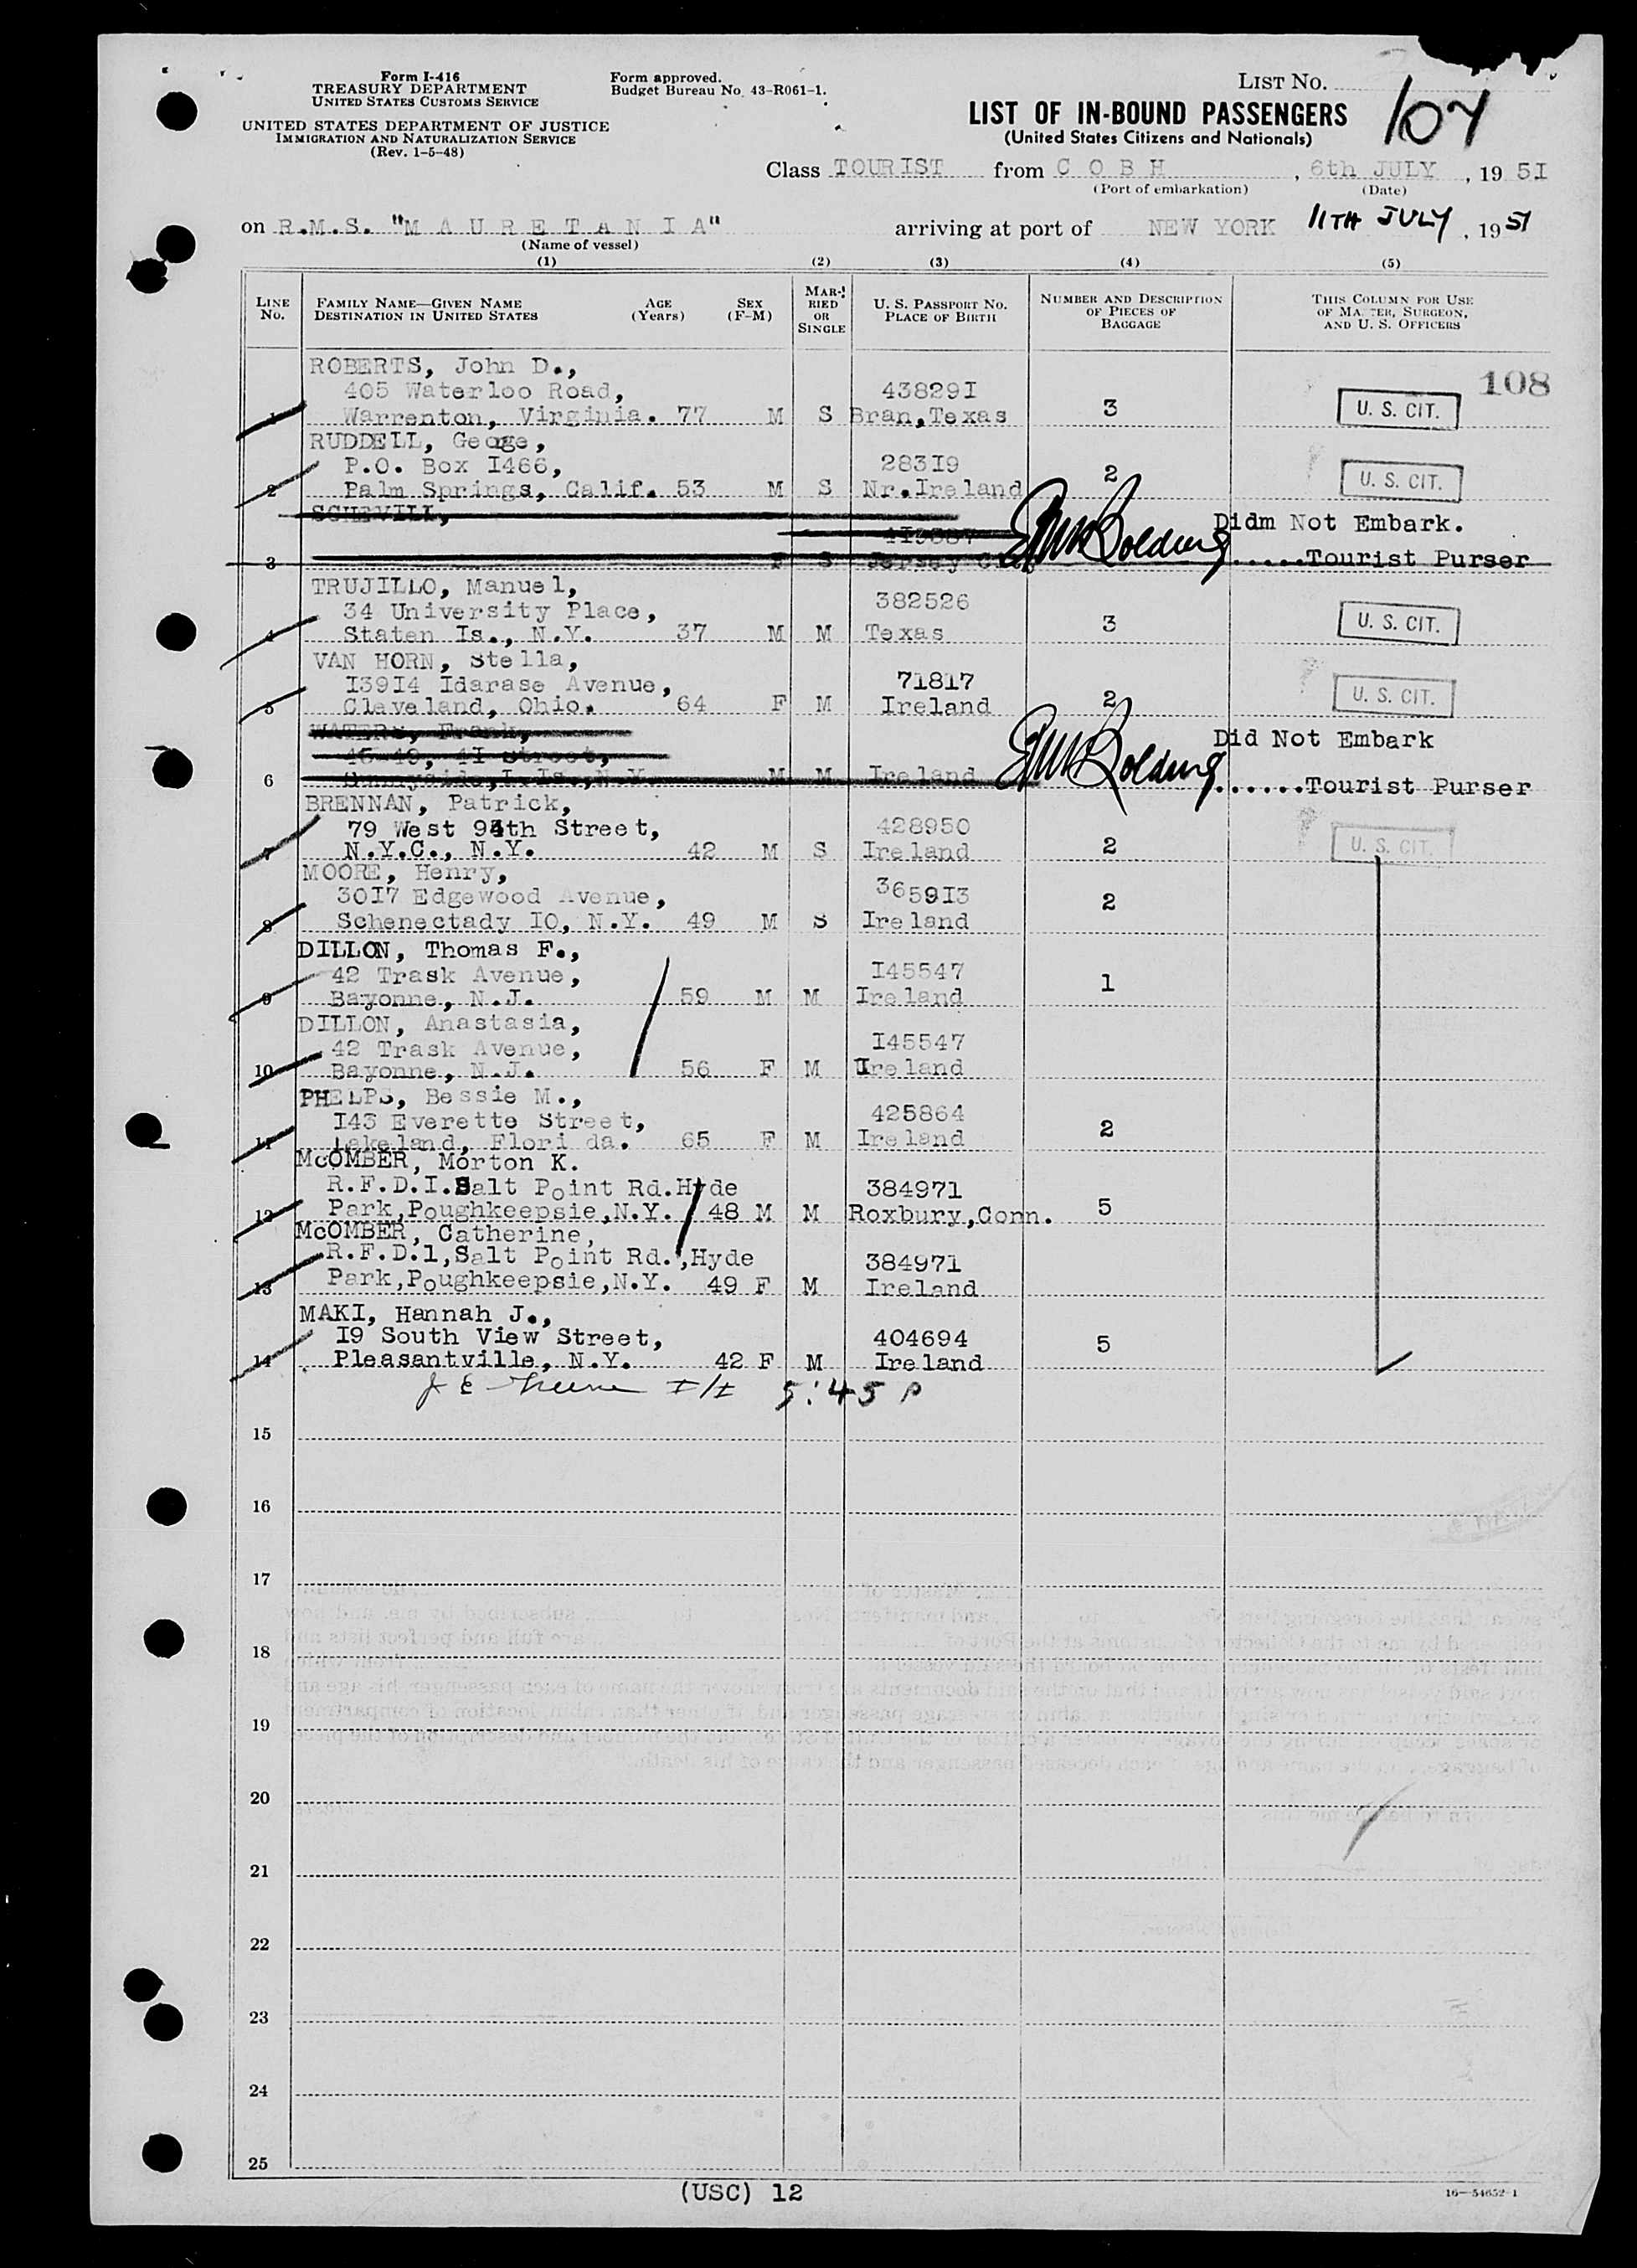 Form I-416
TREASURY DEPARTMENT
UNITED STATES CUSTOMS SERVICE
UNITED STATES DEPARTMENT OF JUSTICE
IMMIGRATION AND NATURALIZATION SERVICE
(Rev. 1-5-48)
Form approved.
Budget Bureau No. 43-R061-1.
LIST NO.
107
LIST OF IN-BOUND PASSENGERS
(United States Citizens and Nationals)
Class TOURIST from C O B H, 6th JULY, 19 5I
(Port of embarkation) (Date)
on R.M.S. "M A U R E T A N I A" arriving at port of NEW YORK 11TH JULY, 1951
(Name of vessel)
(1) (2) (3) (4) (5)
LINE NO. FAMILY NAME—GIVEN NAME DESTINATION IN UNITED STATES AGE (Years) SEX (F-M) MARRIED OR SINGLE U. S. PASSPORT NO. PLACE OF BIRTH NUMBER AND DESCRIPTION OF PIECES OF BAGGAGE THIS COLUMN FOR USE OF MASTER, SURGEON, AND U. S. OFFICERS
108
ROBERTS, John D.,
405 Waterloo Road, 43829I
1 Warrenton, Virginia. 77 M S Bran,Texas 3 U. S. CIT.
RUDDELL, Geoge,
P.O. Box I466, 283I9
2 Palm Springs, Calif. 53 M S Nr.Ireland 2 U. S. CIT.
SCHEVILL, Didm Not Embark.
3 F S Jersey C .....Tourist Purser
TRUJILLO, Manuel,
34 University Place, 382526
4 Staten Is., N.Y. 37 M M Texas 3 U. S. CIT.
VAN HORN, Stella,
I39I4 Idarase Avenue, 71817
5 Cleveland, Ohio. 64 F M Ireland 2 U. S. CIT.
WATERS, Frank, Did Not Embark
45-49, 4I Street,
6 Sunnyside,L.Is.,N.Y. M M Ireland ......Tourist Purser
BRENNAN, Patrick,
79 West 94th Street, 428950
7 N.Y.C., N.Y. 42 M S Ireland 2 U. S. CIT.
MOORE, Henry,
30I7 Edgewood Avenue, 3659I3
8 Schenectady IO, N.Y. 49 M S Ireland 2
DILLON, Thomas F.,
42 Trask Avenue, I45547
9 Bayonne, N.J. 59 M M Ireland 1
DILLON, Anastasia,
42 Trask Avenue, I45547
10 Bayonne, N.J. 56 F M Ireland
PHELPS, Bessie M.,
I43 Everette Street, 425864
11 Lakeland, Flori da. 65 F M Ireland 2
McOMBER, Morton K.
R.F.D.I.Salt Point Rd.Hyde 384971
12 Park,Poughkeepsie,N.Y. 48 M M Roxbury,Conn. 5
McOMBER, Catherine,
R.F.D.1,Salt Point Rd.,Hyde 384971
13 Park,Poughkeepsie,N.Y. 49 F M Ireland
MAKI, Hannah J.,
I9 South View Street, 404694
14 Pleasantville, N.Y. 42 F M Ireland 5
5:45 P
15
16
17
18
19
20
21
22
23
24
25
(USC) 12
16—54652-1